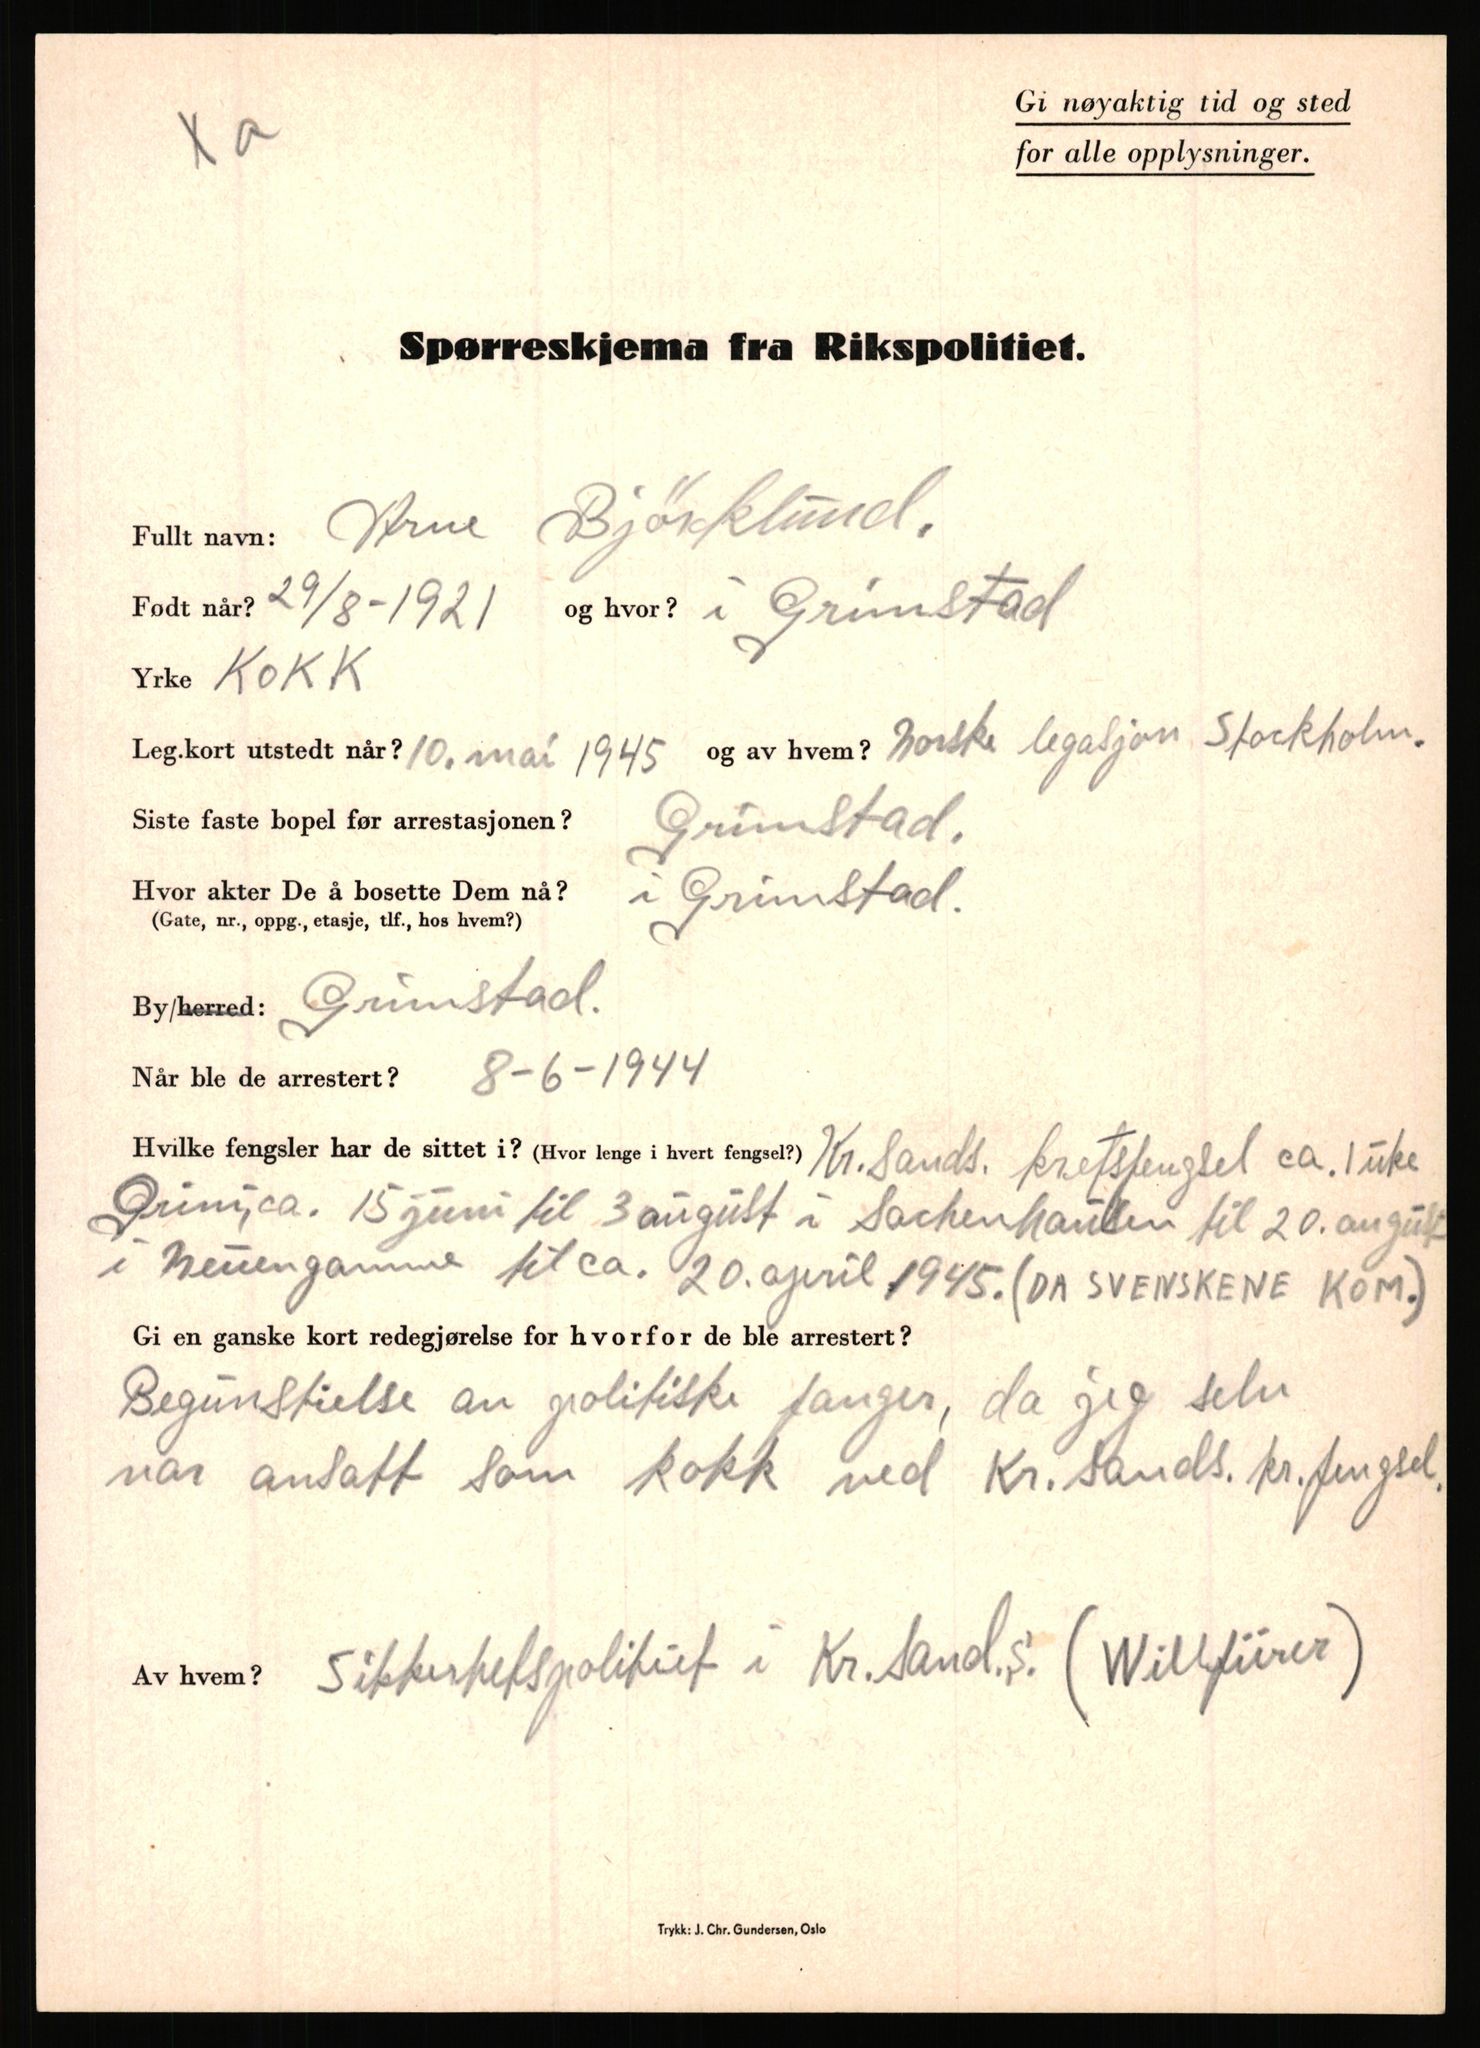 Xa
Gi nøyaktig tid og sted
for alle opplysninger.
Spørreskjema fra Rikspolitiet.
Fullt navn: Arne Björklund.
Født når? 29/8-1921 og hvor? i Grimstad
Yrke KOKK
Leg.kort utstedt når? 10. mai 1945 og av hvem? Norske legasjon Stockholm.
Siste faste bopel før arrestasjonen? Grimstad.
Hvor akter De å bosette Dem nå? i Grimstad.
(Gate, nr., oppg., etasje, tlf., hos hvem?)
By/herred: Grimstad.
Når ble de arrestert? 8-6-1944
Hvilke fengsler har de sittet i? (Hvor lenge i hvert fengsel?) Kr.sands. kretsfengsel ca. 1 uke
Grini, ca. 15 juni til 3 august i Sachenhausen til 20. august
i Neuengamme til ca. 20. april 1945. (DA SVENSKENE KOM.)
Gi en ganske kort redegjørelse for hvorfor de ble arrestert?
Begunstielse av politiske fanger, da jeg selv
var ansatt som kokk ved Kr. sands. kr. fengsel.
Av hvem? Sikkerhetspolitiet i Kr. sand.s. (Willfürer)
Trykk: J. Chr. Gundersen, Oslo